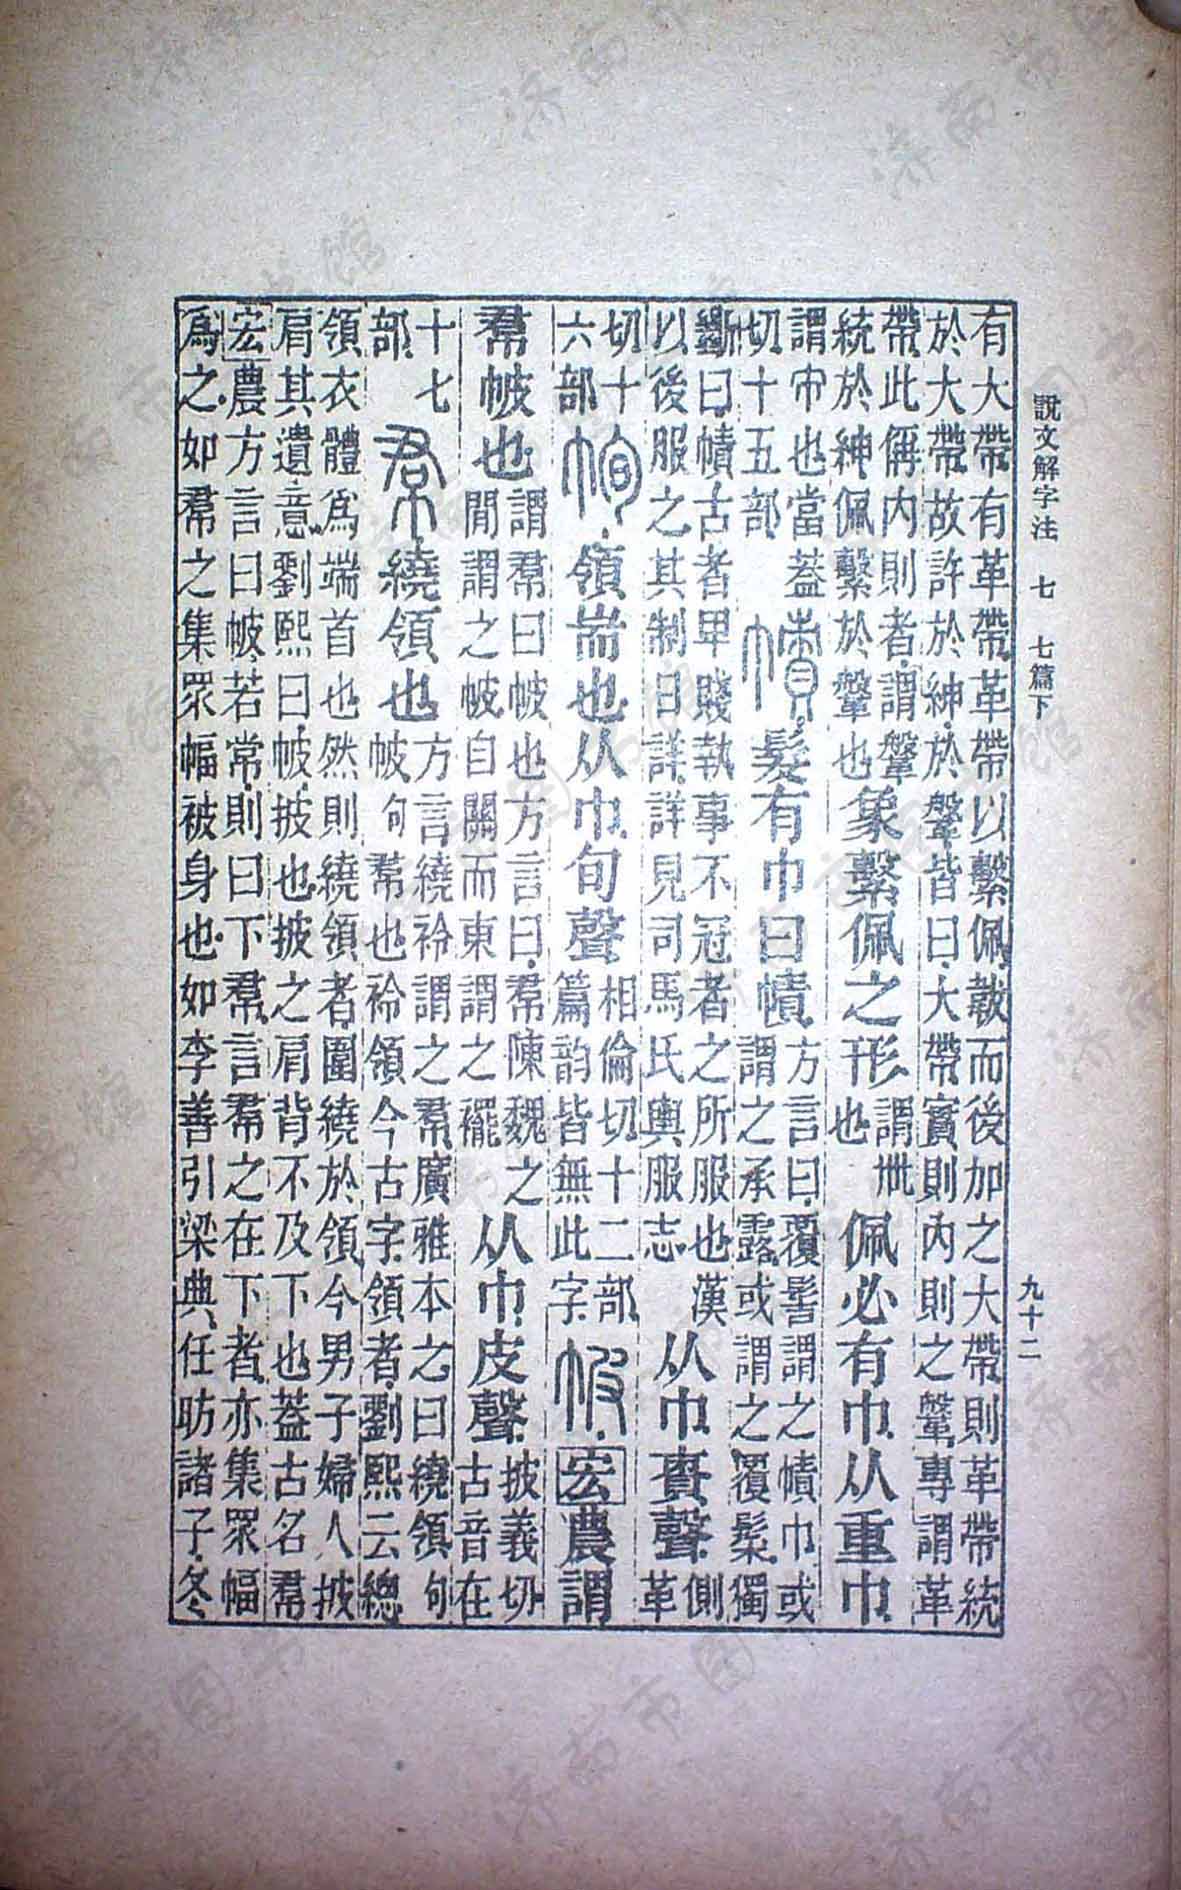 說文解字注 七 七篇下 九十二
有大帶有革帶革帶以繫佩韍而後加之大帶則革帶統
於大帶故許於紳於鞶皆曰大帶實則內則之鞶專謂革
帶此偁內則者謂鞶
統於紳佩繫於鞶也
象繫佩之形
謂卌
也
佩必有巾从重巾
謂帀也當蓋
切十五部
幘
髮有巾曰幘
方言曰覆髻謂之幘巾或
謂之承露或謂之覆髤獨
斷曰幘古者卑賤執事不冠者之所服也漢
以後服之其制日詳詳見司馬氏輿服志
从巾責聲
側
革
切十
六部
領耑也从巾旬聲
相倫切十二部
篇韵皆無此字
帔
宏農謂
帬帔也
謂帬曰帔也方言曰帬陳魏之
閒謂之帔自關而東謂之襬
从巾皮聲
披義切
古音在
十七
部
帬
繞領也
方言繞衿謂之帬廣雅本之曰繞領句
帔句帬也衿領今古字領者劉熙云總
領衣體爲端首也然則繞領者圍繞於領今男子婦人披
肩其遺意劉熙曰帔披也披之肩背不及下也蓋古名帬
宏農方言曰帔若常則曰下帬言帬之在下者亦集眾幅
爲之如帬之集眾幅被身也如李善引梁典任昉諸子冬